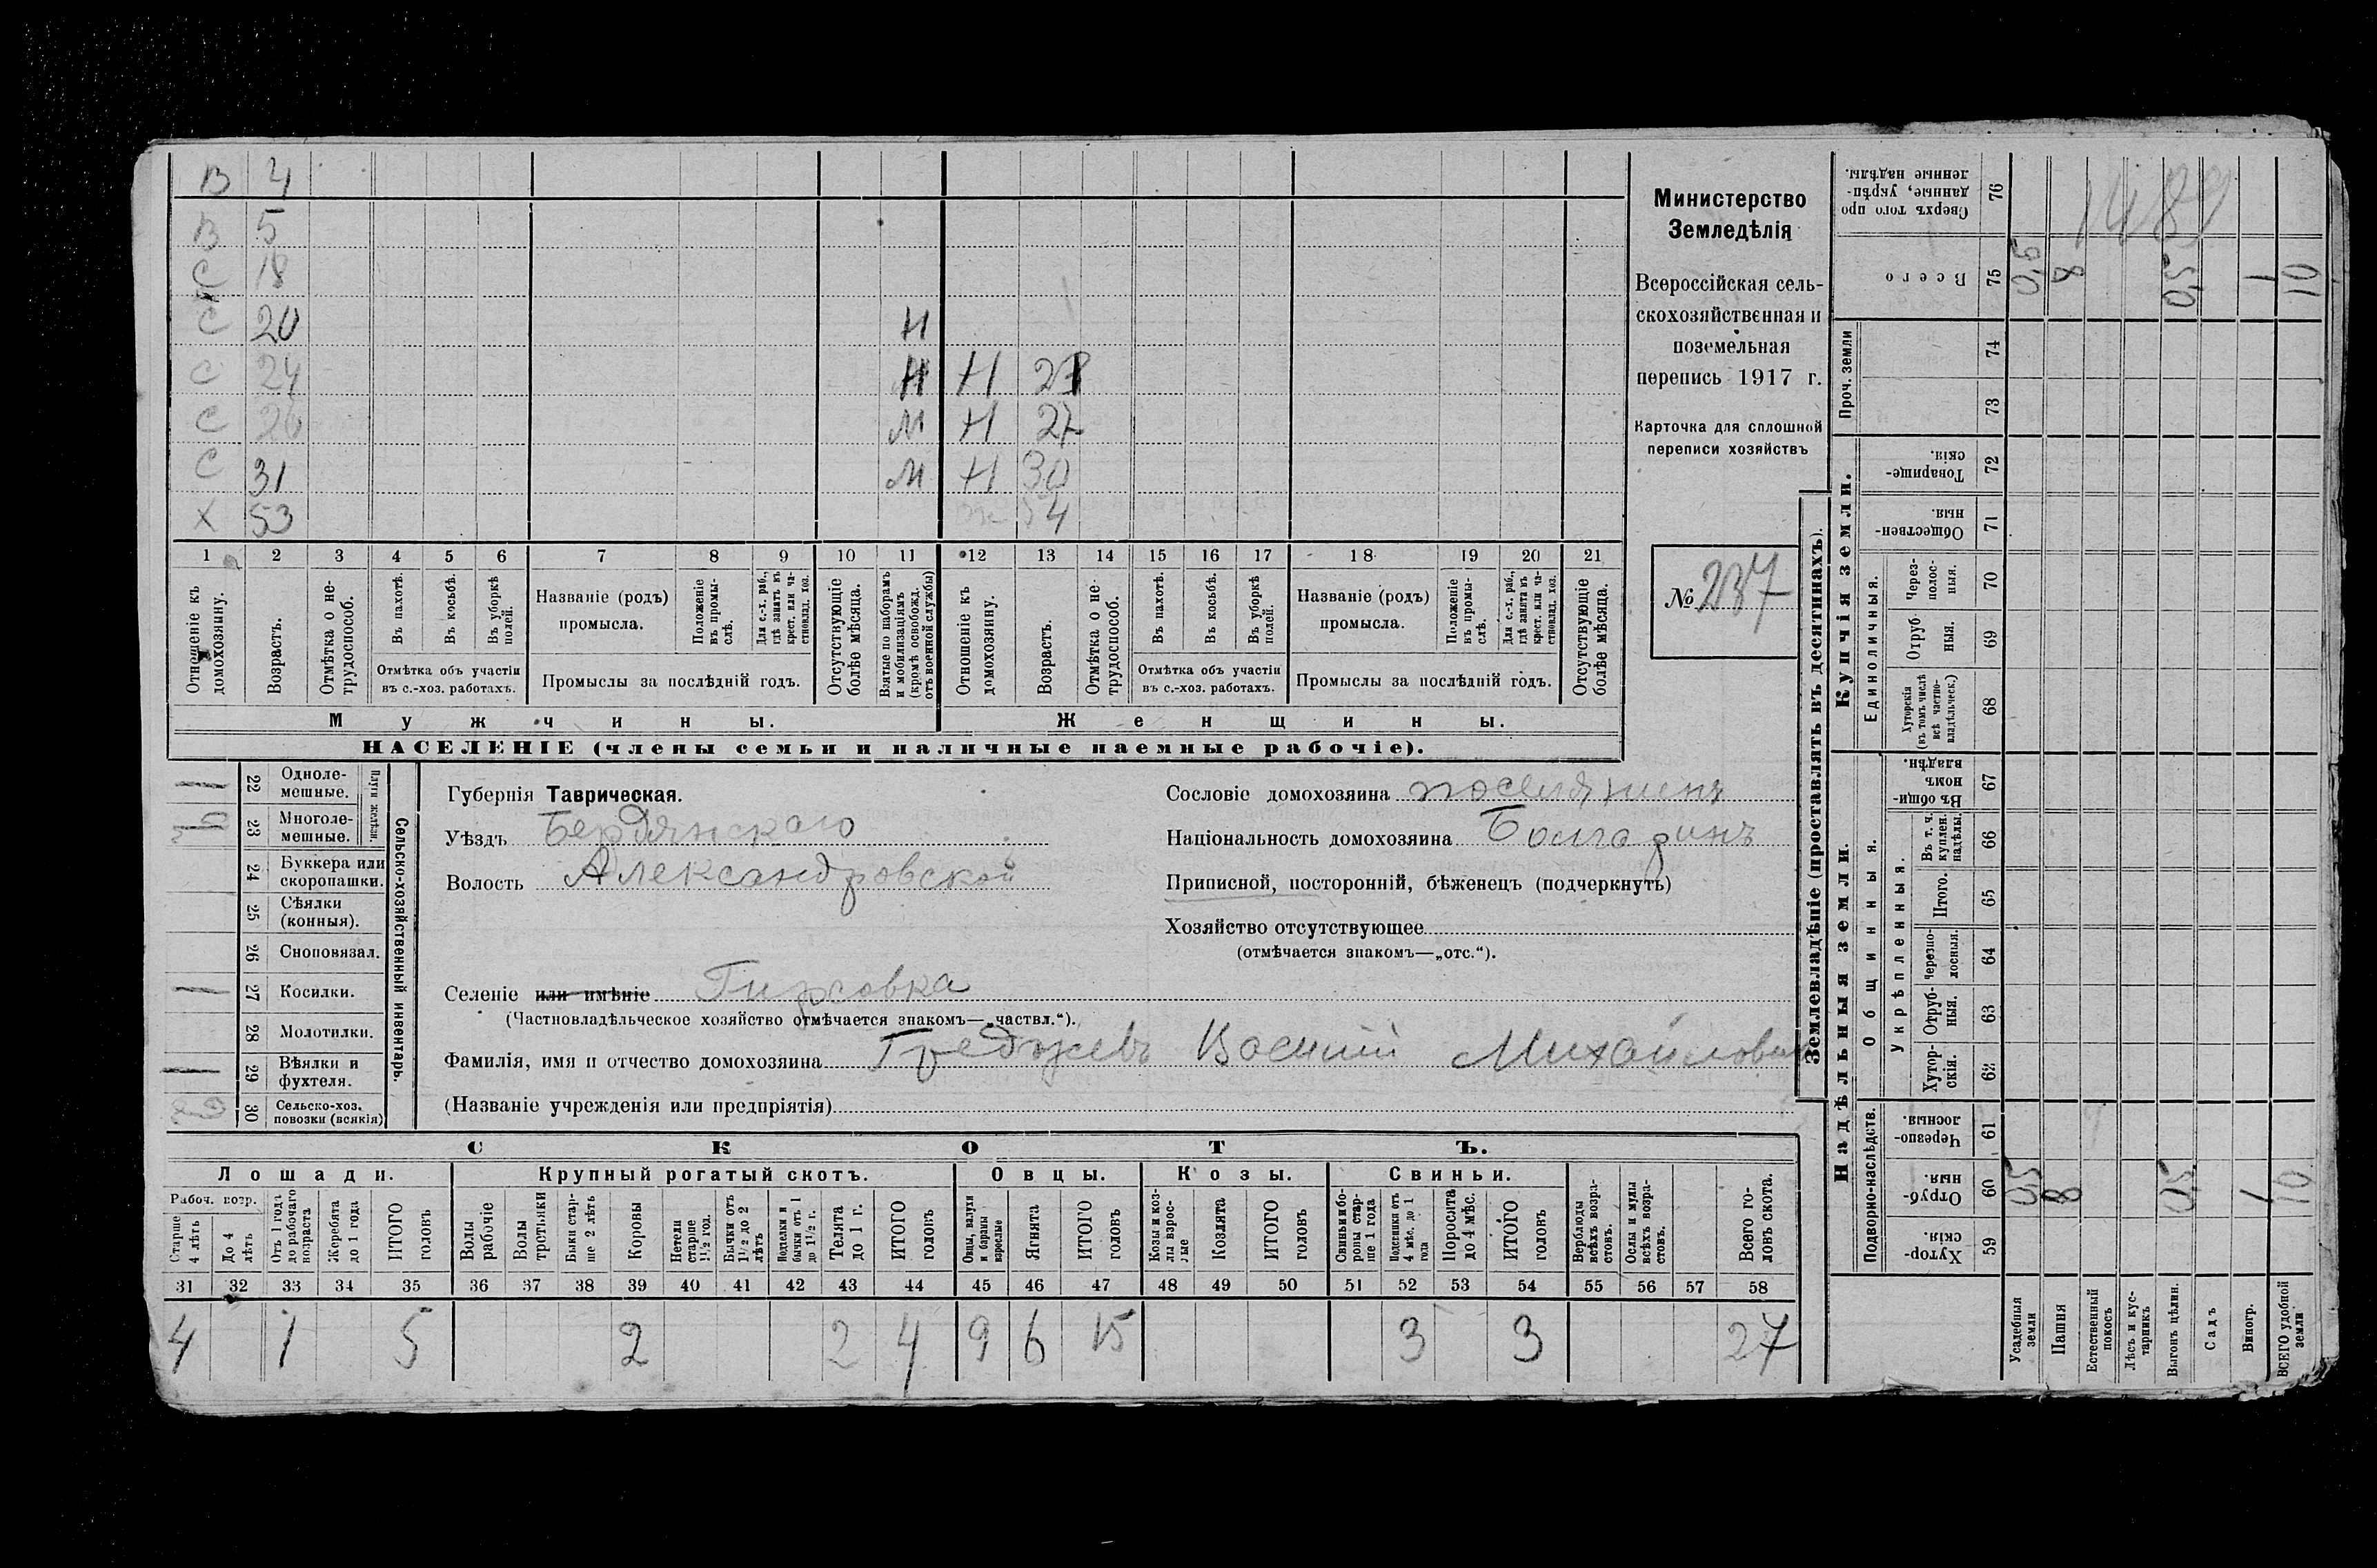 В 4
В 5
С 18
С 20 Н
С 24 Н Н
С М Н 27
С 31 М Н 30
Х 53
1 2 3 4 5 6 7 8 9 10 11 12 13 14 15 16 17 18 19 20 21
Отношеніе къ домохозяину.
Возрастъ.
Отмѣтка о не-трудоспособ.
Въ пахотѣ.
Въ косьбѣ.
Въ уборкѣ полей.
Отмѣтка объ участіи
въ с.-хоз. работахъ.
Названіе (родъ)
промысла.
Положеніе въ промы-слѣ.
Для с.-х. раб., гдѣ занятъ въ крест. или ча-стновлад. хоз.
Промыслы за послѣдній годъ.
Отсутствующіе болѣе мѣсяца.
Взятые по наборамъ и мобилизаціямъ (кромѣ освобожд. отъ военной службы)
Отношеніе къ домохозяину.
Возрастъ.
Отмѣтка о не-трудоспособ.
Въ пахотѣ.
Въ косьбѣ.
Въ уборкѣ полей.
Отмѣтка объ участіи
въ с.-хоз. работахъ.
Названіе (родъ)
промысла.
Положеніе въ промы-слѣ.
Для с.-х. раб., гдѣ занята въ крест. или ча-стновлад. хоз.
Промыслы за послѣдній годъ.
Отсутствующіе болѣе мѣсяца.
Мужчины. Женщины.
НАСЕЛЕНІЕ (члены семьи и наличные наемные рабочіе).
Министерство
Земледѣлія
Всероссійская сель-
скохозяйственная и
поземельная
перепись 1917 г.
Карточка для сплошной
переписи хозяйствъ
№ 237
Сельско-хозяйственный инвентарь.
Плуги желѣзн.
22 Одноле-мешные.
23 Многоле-мешные.
24 Буккера или скоропашки.
25 Сѣялки (конныя).
26 Сноповязал.
27 Косилки.
28 Молотилки.
29 Вѣялки и фухтеля.
30 Сельско-хоз. повозки (всякія)
Губернія Таврическая.
Уѣздъ Бердянскаго
Волость Александровской
Сословіе домохозяина поселянинъ
Національность домохозяина Болгаринъ
Приписной, посторонній, бѣженецъ (подчеркнуть)
Хозяйство отсутствующее
(отмѣчается знакомъ—„отс.“).
Селеніе или имѣніе Гирсовка
(Частновладѣльческое хозяйство отмѣчается знакомъ—„частвл.“).
Фамилія, имя и отчество домохозяина Василій Михайловичъ
(Названіе учрежденія или предпріятія)
СКОТЪ.
Лошади. Крупный рогатый скотъ. Овцы. Козы. Свиньи.
Рабоч. возр.
Старше 4 лѣтъ
До 4 лѣтъ
Отъ 1 года до рабочаго возраста
Жеребята до 1 года
ИТОГО головъ
Волы рабочіе
Волы третьяки
Быки стар-ше 2 лѣтъ
Коровы
Нетели старше 1½ год.
Бычки отъ 1½ до 2 лѣтъ
бычки отъ 1 до 1½ г.
Телята до 1 г.
ИТОГО головъ
Овцы, валухи и бараны взрослые
Ягнята
ИТОГО головъ
Козы и коз-лы взрос-лые
Козлята
ИТОГО головъ
Свиньи и бо-ровы стар-ше 1 года
Подсвинки отъ 4 мѣс. до 1 года
Поросята до 4 мѣс.
ИТОГО головъ
Верблюды всѣхъ возра-стовъ.
Ослы и мулы всѣхъ возра-стовъ.
Всего го-ловъ скота.
31 32 33 34 35 36 37 38 39 40 41 42 43 44 45 46 47 48 49 50 51 52 53 54 55 56 57 58
4 1 5 2 2 4 9 6 15 3 3 27
Землевладѣніе (проставлять въ десятинахъ).
Надѣльныя земли.
Подворно-наслѣдств.
Хутор-скія. 59
Отруб-ныя. 60 05 8 05 1 10
Черезпо-лосныя 61
Общинныя.
Укрѣпленныя.
Хутор-скія. 62
Отруб-ныя. 63
Черезпо-лосныя. 64
Итого. 65
Въ т. ч. куплен. надѣлы. 66
Въ общи-номъ владѣн. 67
Купчія земли.
Единоличныя.
Хуторскія (въ томъ числѣ всѣ частно-владѣльческ.) 68
Отруб-ныя. 69
Через-полос-ныя. 70
Обществен-ныя. 71
Товарище-скія. 72
Проч. земли
73
74
Всего 75 05 8 05 1 10
Сверхъ того про-данные, укрѣп-ленные надѣлы. 76
1489
Усадебныя земли
Пашня
Естественный покосъ
Лѣсъ и кус-тарникъ
Выгонъ цѣлин.
Садъ
Виногр.
ВСЕГО удобной земли